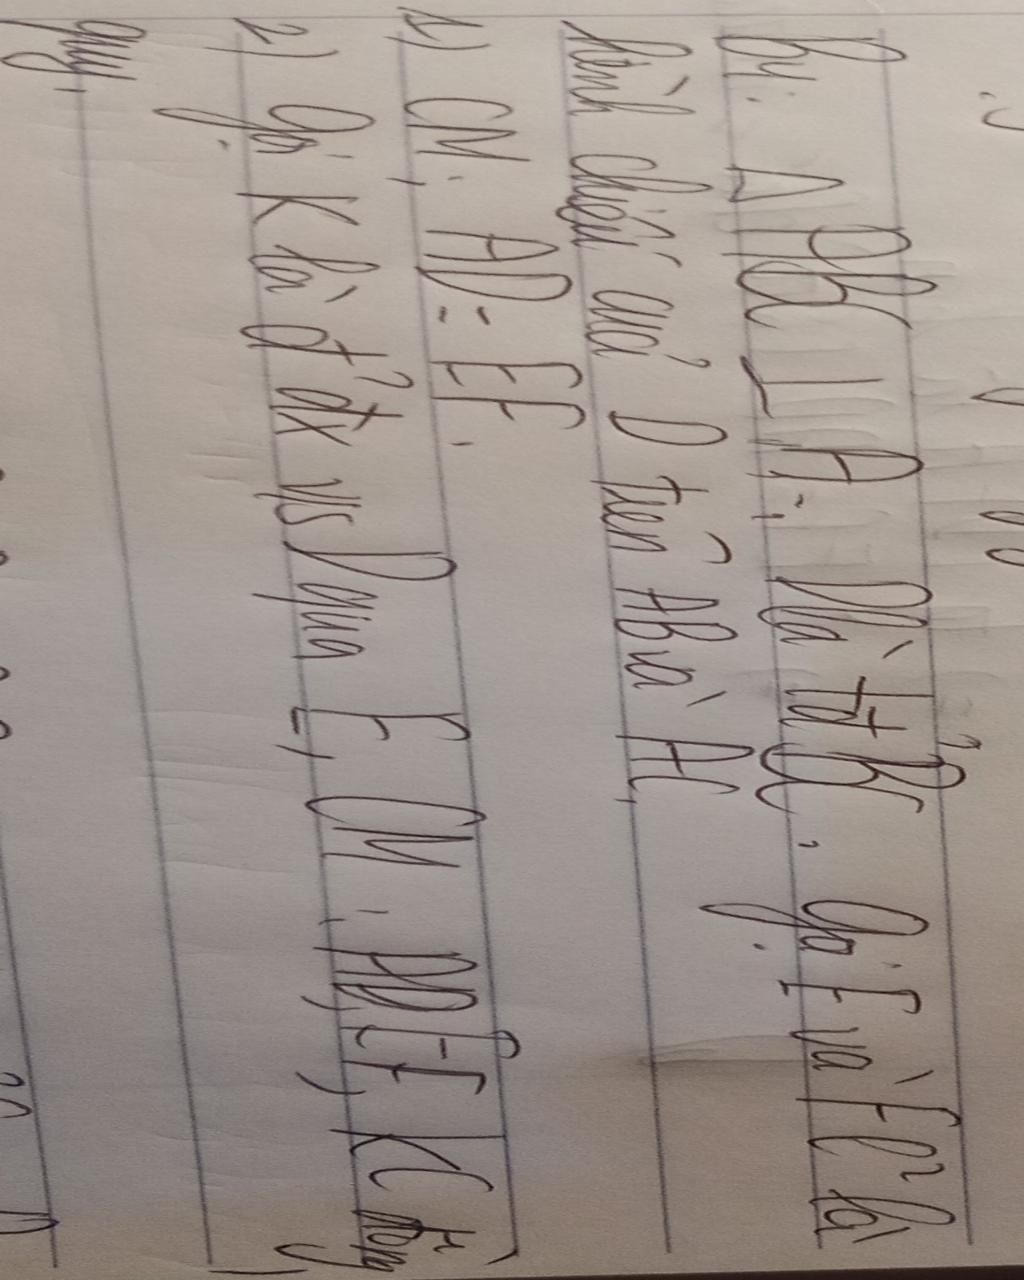 B4: Δ ABC ⊥ A; D là tđ BC, Gọi E và F l² là
hình chiếu của D trên AB và AC,
1) CM: AD = EF.
2) Gọi K là đ' đx vs D qua E, CM: AD, EF, KC đồng
quy,